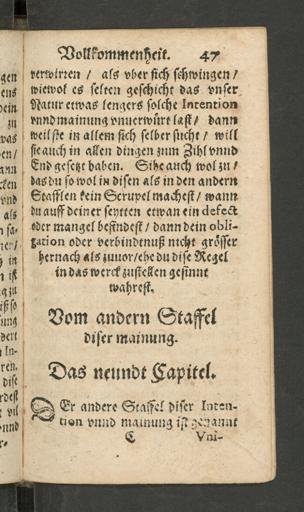 Vollkommenheit. 47
verwirren / als vber sich schwingen /
wiewol es selten geschicht das vnser
Natur etwas lengers solche Intention
vnnd mainung vnuerwürt last / dann
weil sie in allem sich selber sucht / will
sie auch in allen dingen zum Zihl vnnd
End gesetzt haben. Sihe auch wol zu /
das du so wol in disen als in den andern
Stafflen kein Scrupel machest / wann
du auff deiner seytten etwan ein defect
oder mangel befindest / dann dein obli-
gation oder verbindtnuß nicht grösser
hernach als zuuor / ehe du dise Regel
in das werck zustellen gesinnt
warest.
Vom andern Staffel
diser mainung.
Das neundt Capitel.
DEr andere Staffel diser Inten-
tion vnnd mainung ist genannt
C Vni-
gen
ens
dein
zu
was
en /
ann
cken
vnd
als
n sa-
ner /
in
n ist
g zu
ung
dert
n In-
ren.
dise
rdest
vil
vnnd